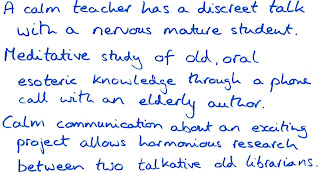 A calm teacher has a discreet talk
with a nervous mature student.
Meditative study of old, oral
esoteric knowledge through a phone
call with an elderly author.
Calm communication about an exciting
project allows harmonious research
between two talkative old librarians.